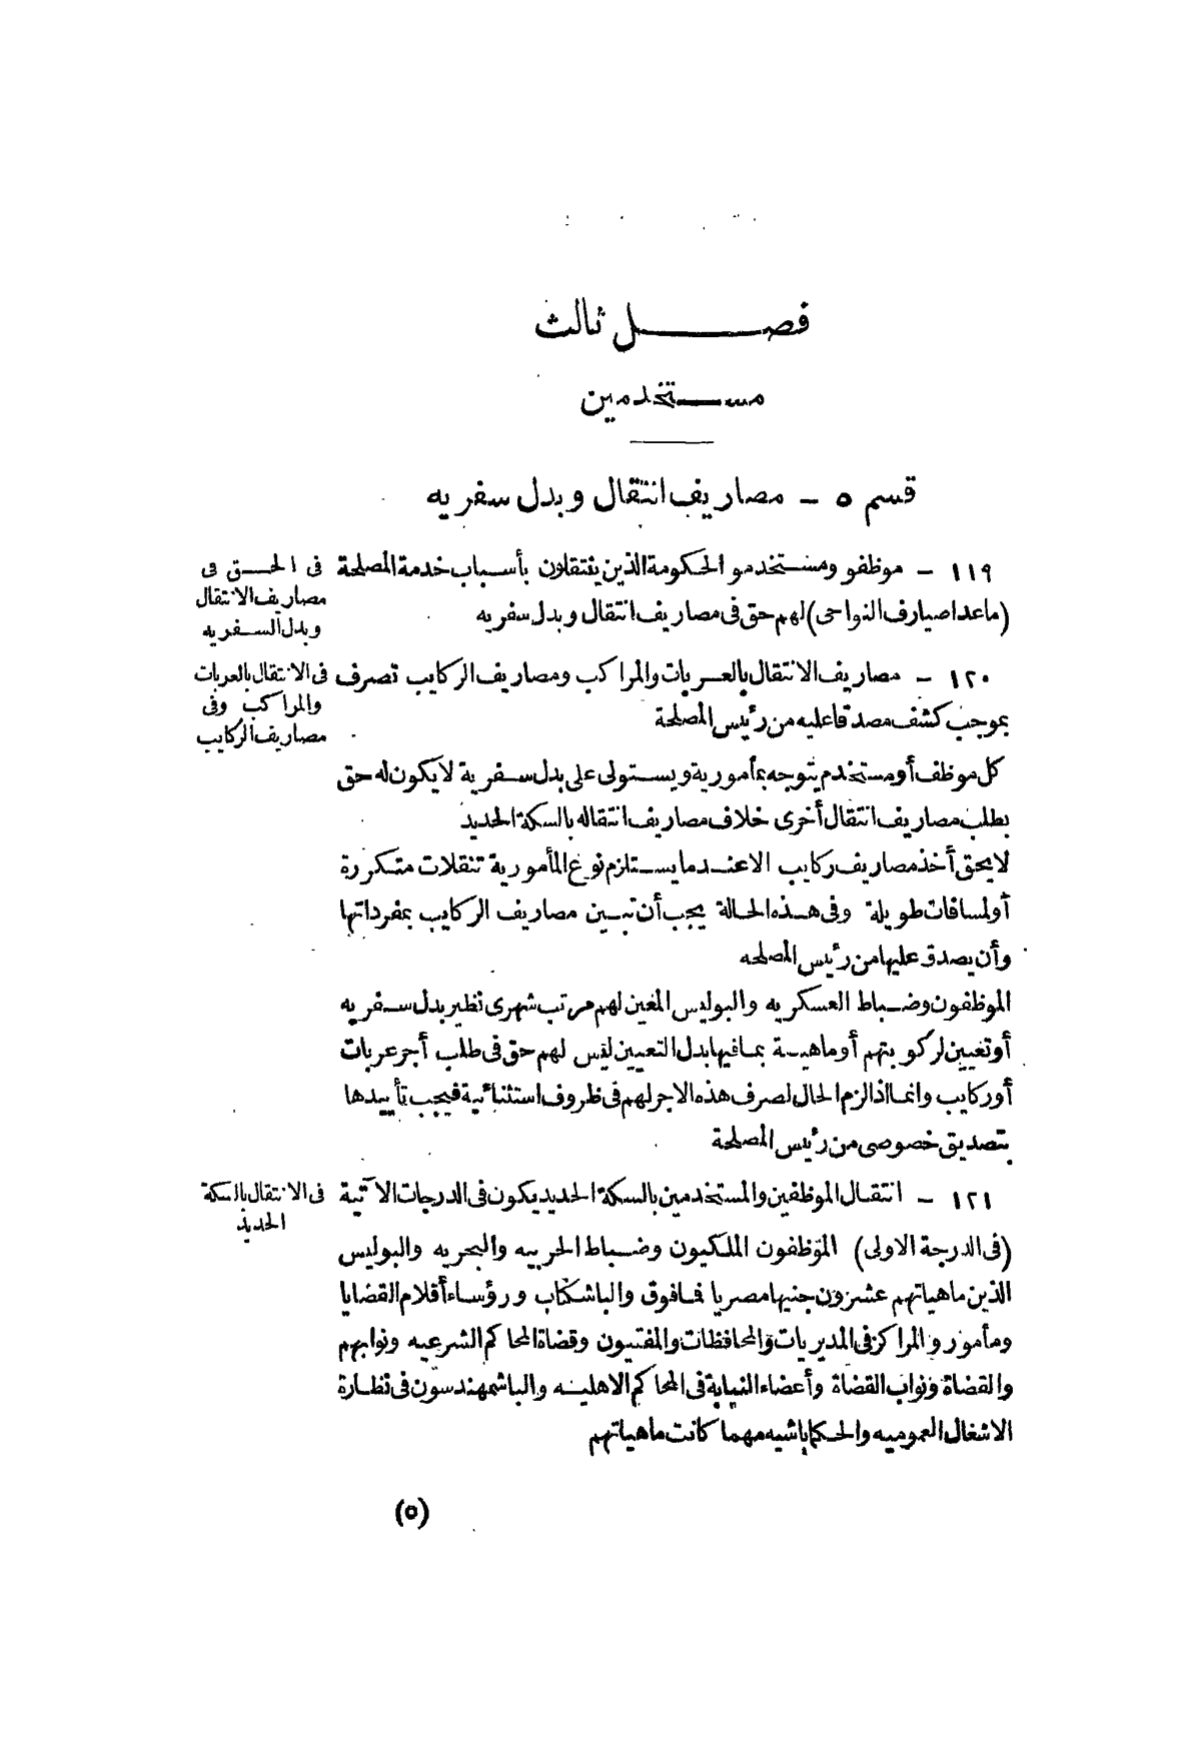 فصل ثالث
مستخدمين
قسم ٥ - مصاريف انتقال وبدل سفريه
١١٩ - موظفو ومستخدمو الحكومة الذين ينتقلون بأسباب خدمة المصلحة
(ماعدا صيارف النواحى) لهم حق فى مصاريف انتقال وبدل سفريه
فى الحق فى
مصاريف الانتقال
وبدل السفريه
١٢٠ - مصاريف الانتقال بالعربات والمراكب ومصاريف الركايب تصرف
بموجب كشف مصدقا عليه من رئيس المصلحة
فى الانتقال بالعربات
والمراكب وفى
مصاريف الركايب
كل موظف أو مستخدم يتوجه بمأمورية ويستولى على بدل سفرية لا يكون له حق
بطلب مصاريف انتقال أخرى خلاف مصاريف انتقاله بالسكة الحديد
لا يحق أخذ مصاريف ركايب الا عند ما يستلزم نوع المأمورية تنقلات متكررة
أو لمسافات طويلة وفى هذه الحالة يجب أن تبين مصاريف الركايب بمفرداتها
وأن يصدق عليها من رئيس المصلحه
الموظفون وضباط العسكريه والبوليس المعين لهم مرتب شهرى نظير بدل سفريه
أو تعيين لركوبتهم أو ماهية بما فيها بدل التعيين ليس لهم حق فى طلب أجر عربات
أو ركايب وانما اذا لزم الحال لصرف هذه الاجر لهم فى ظروف استثنائية فيجب تأييدها
بتصديق خصوصى من رئيس المصلحة
١٢١ - انتقال الموظفين والمستخدمين بالسكة الحديد يكون فى الدرجات الآتية
فى الانتقال بالسكة
الحديد
(فى الدرجة الاولى) الموظفون الملكيون وضباط الحربيه والبحريه والبوليس
الذين ماهياتهم عشرون جنيها مصريا فما فوق والباشكتاب ورؤساء أقلام القضايا
ومأمورو المراكز فى المديريات والمحافظات والمفتيون وقضاة المحاكم الشرعيه ونوابهم
والقضاة ونواب القضاة وأعضاء النيابة فى المحاكم الاهليه والباشمهندسون فى نظارة
الاشغال العموميه والحكاباشيه مهما كانت ماهياتهم
(٥)